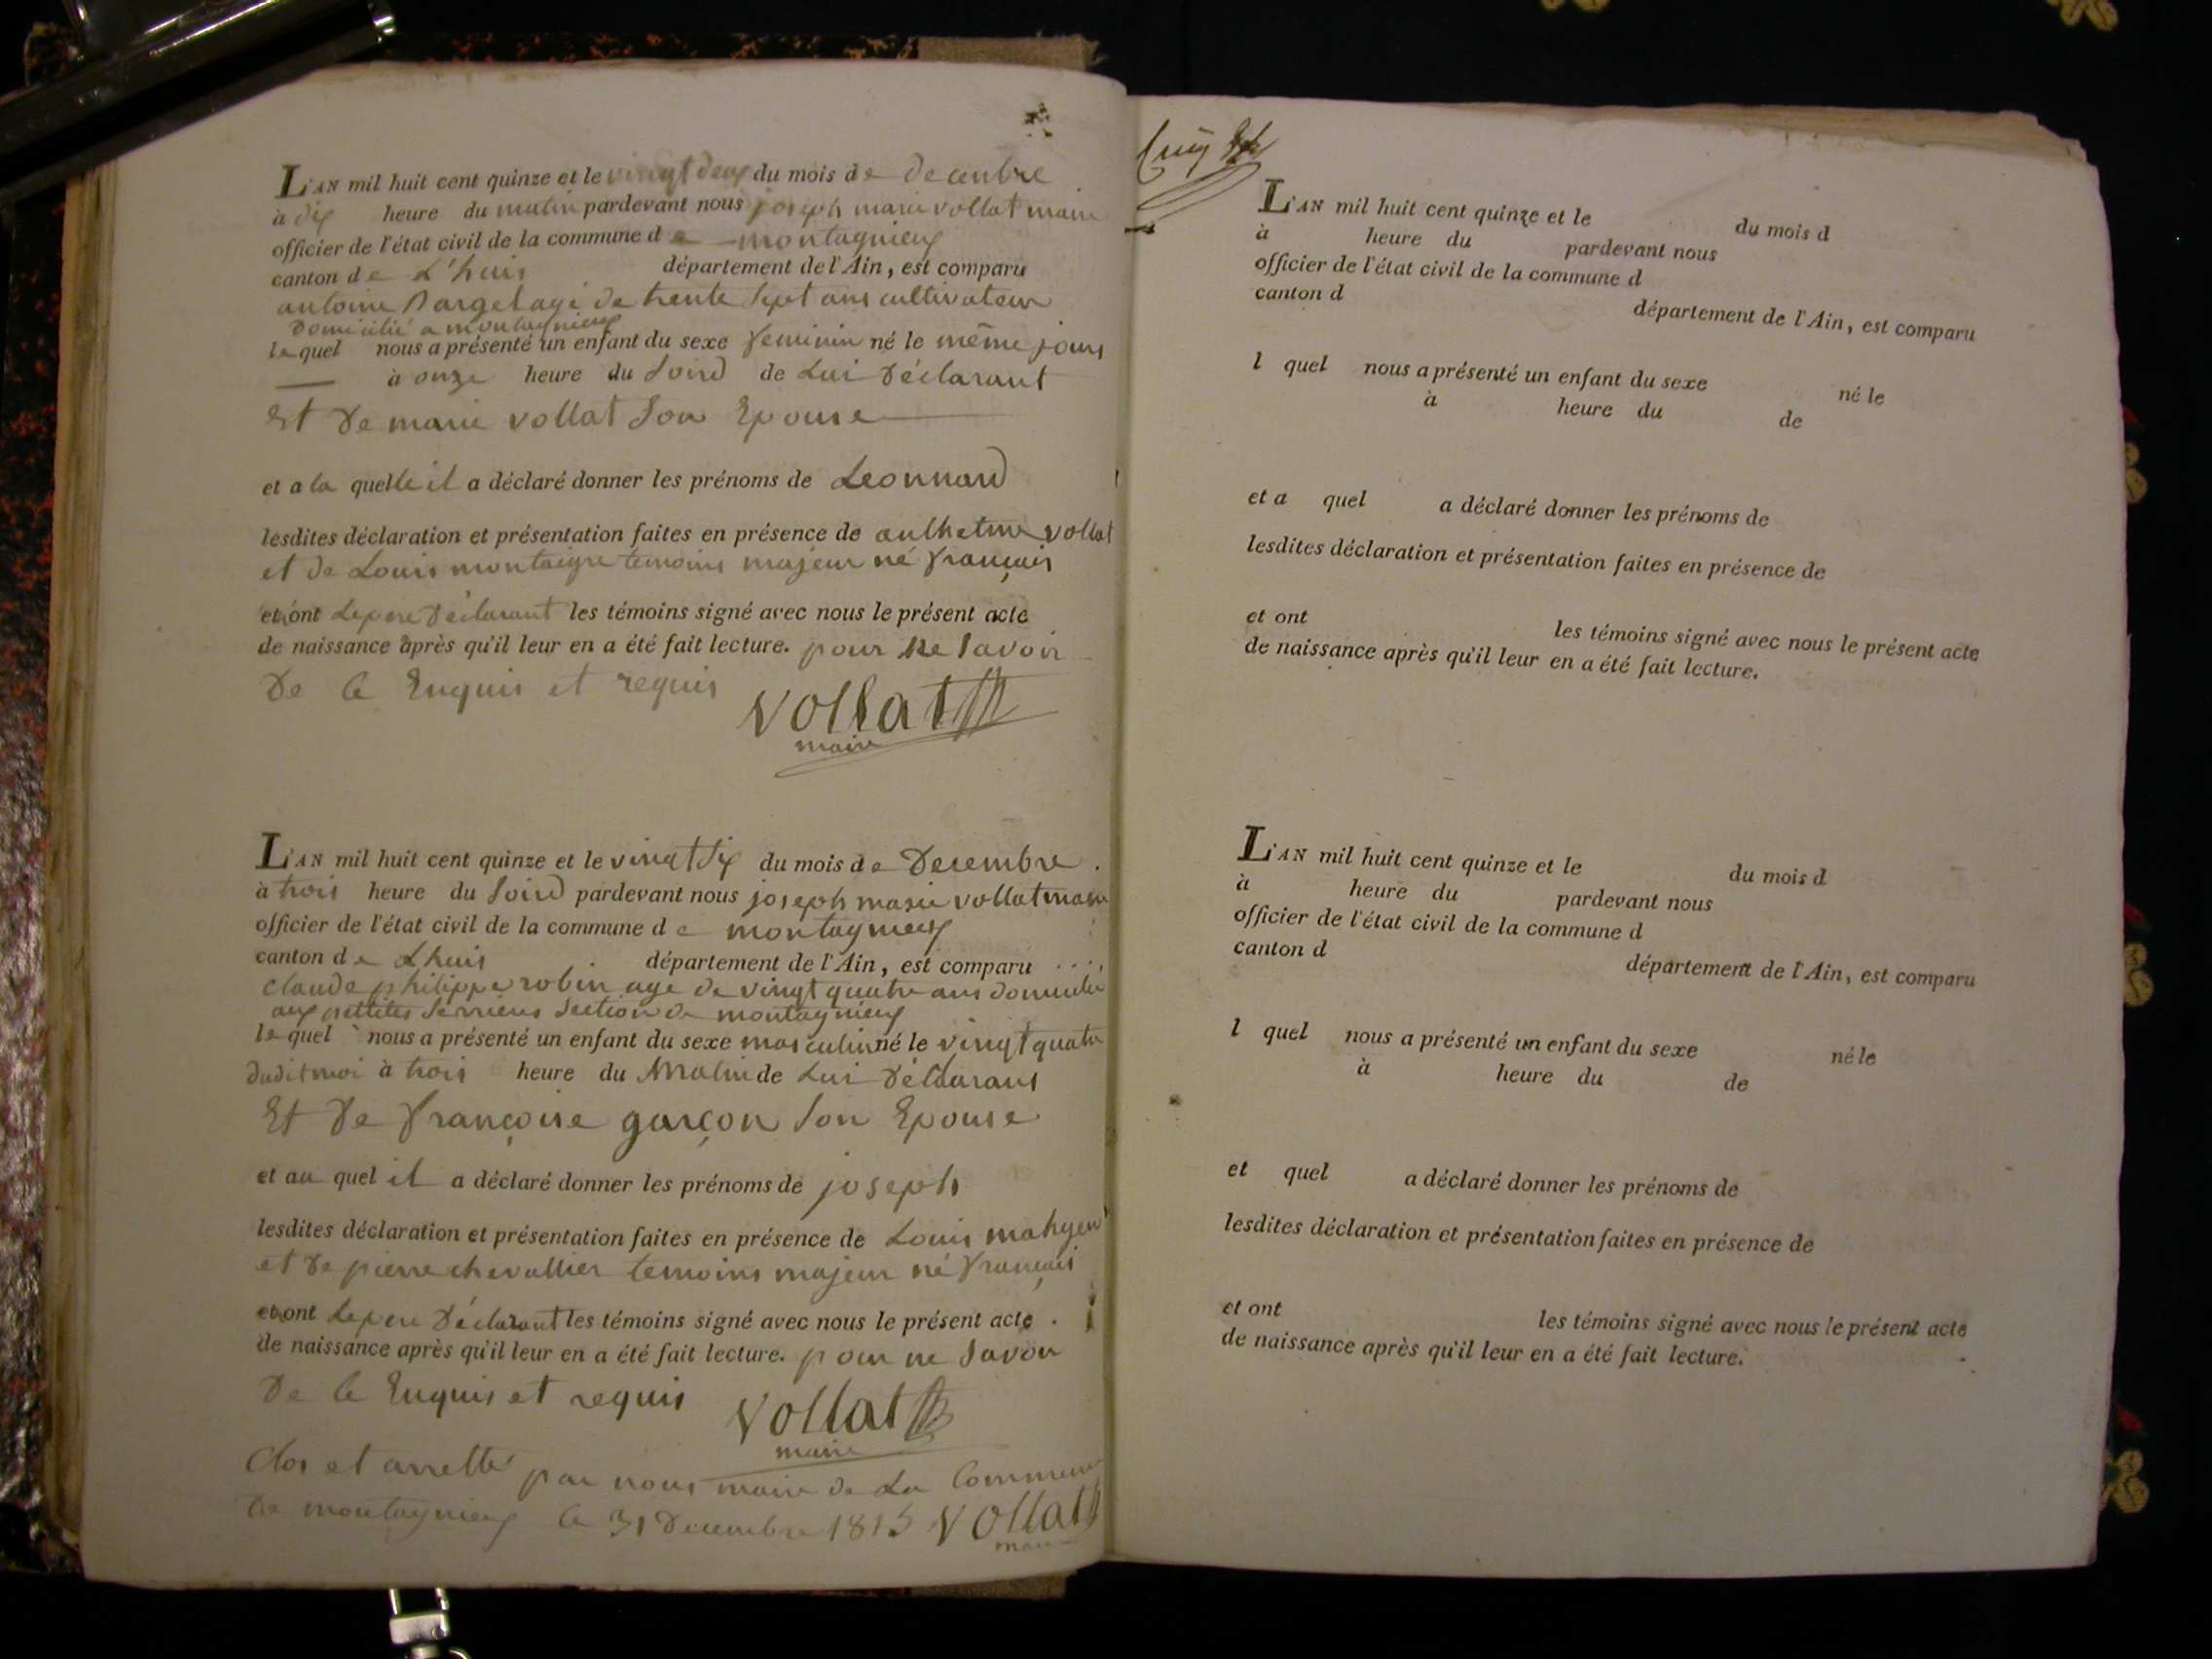 L'AN mil huit cent quinze et le vingt deux du mois de decenbre
à dix heure du matin pardevant nous joseph marie vollat maire
officier de l'état civil de la commune de montagnieux
canton de L'huis département de l'Ain, est comparu
antoine Dargel agé de trente sept ans cultivateur
domicilié a montagnieux
lequel nous a présenté un enfant du sexe feminin né le même jours
à onze heure du soird de Lui déclarant
Et de marie vollat son Epouse
et a la quelle il a déclaré donner les prénoms de Leonnard
lesdites déclaration et présentation faites en présence de anthelme vollat
et de Louis montaigre temoins majeur né français
et ont Le pere déclarant les témoins signé avec nous le présent acte
de naissance après qu'il leur en a été fait lecture. pour ne savoir
de ce Enquis et requis
vollat
maire
L'AN mil huit cent quinze et le vingt six du mois de decembre
à trois heure du soird pardevant nous joseph marie vollat maire
officier de l'état civil de la commune de montagnieux
canton de Lhuis département de l'Ain, est comparu
claude philippe robin age de vingt quatre ans domicilie
aux pettites serrieres section de montagnieux
lequel nous a présenté un enfant du sexe masculin né le vingt quatre
dudit moi à trois heure du Matin de Lui déclarant
Et de françoise garçon son Epouse
et au quel il a déclaré donner les prénoms de joseph
lesdites déclaration et présentation faites en présence de Louis
et de pierre chevallier temoins majeur né français
et ont Le pere déclarant les témoins signé avec nous le présent acte
de naissance après qu'il leur en a été fait lecture. pour ne savoir
de ce Enquis et requis
vollat
maire
Clos et arretté par nous maire de La Commune
de montagnieux le 31 decembre 1815 vollat
maire
L'AN mil huit cent quinze et le du mois d
à heure du pardevant nous
officier de l'état civil de la commune d
canton d département de l'Ain, est comparu
l quel nous a présenté un enfant du sexe né le
à heure du de
et a quel a déclaré donner les prénoms de
lesdites déclaration et présentation faites en présence de
et ont les témoins signé avec nous le présent acte
de naissance après qu'il leur en a été fait lecture.
L'AN mil huit cent quinze et le du mois d
à heure du pardevant nous
officier de l'état civil de la commune d
canton d département de l'Ain, est comparu
l quel nous a présenté un enfant du sexe né le
à heure du de
et quel a déclaré donner les prénoms de
lesdites déclaration et présentation faites en présence de
et ont les témoins signé avec nous le présent acte
de naissance après qu'il leur en a été fait lecture.